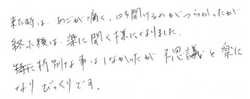 来た時は、あごが痛く、口を開けるのがつらかったが
終る頃は楽に開く様になりました。
特に特別な事はしなかったが不思議と楽に
なりびっくりです。